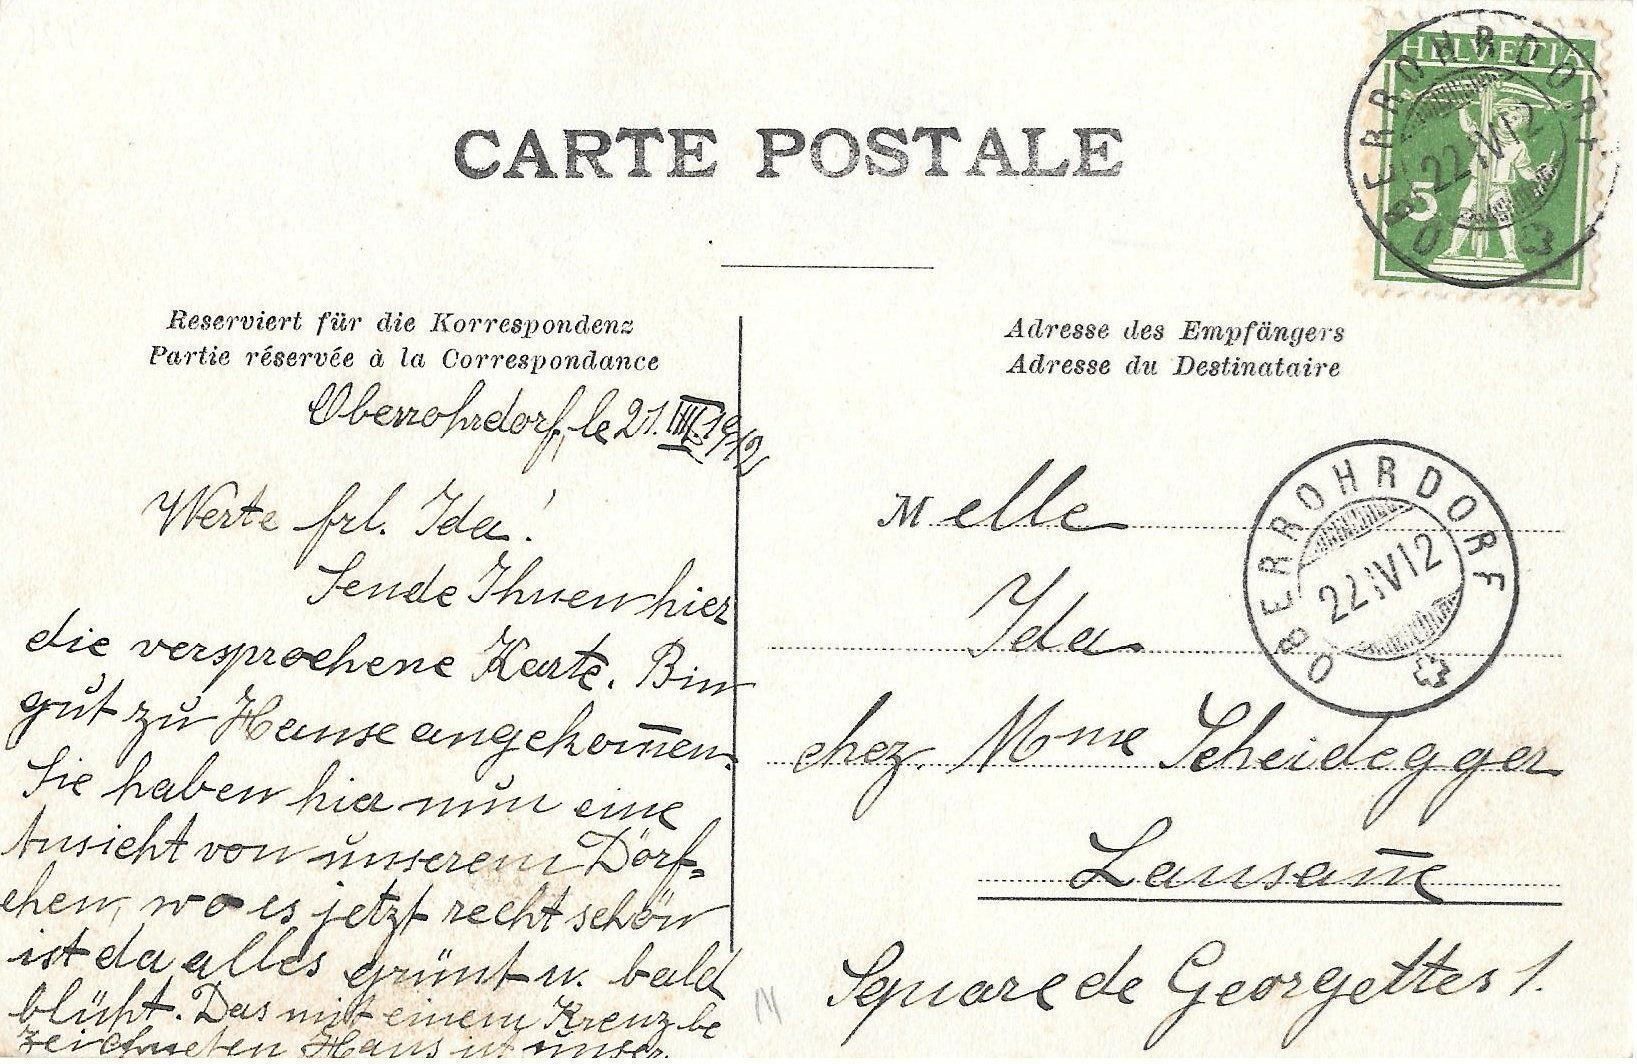 CARTE POSTALE
HELVETIA
5
OBERROHRDORF
22.IV.12
Reserviert für die Korrespondenz
Partie réservée à la Correspondance
Oberrohrdorf, le 21. IIII. 1912
Werte frl. Ida!
Sende Ihnen hier
die versprochene Karte. Bin
gut zu Hause angekom̅en.
Sie haben hier nun eine
Ansicht von unserem Dörf-
chen, wo es jetzt recht schön
ist da alles grünt u. bald
blüht. Das mit einem Kreuz be
zeichneten Haus ist unser
Adresse des Empfängers
Adresse du Destinataire
OBERROHRDORF
22.IV.12
Melle
Ida
chez. Mme Scheidegger
Lausan̅e
Square de Georgettes 1.